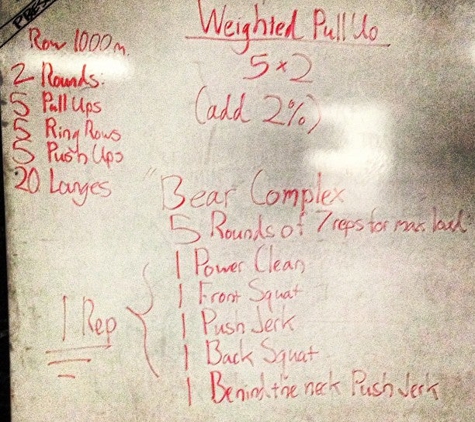 Row 1000m
2 Rounds:
5 Pull Ups
5 Ring Rows
5 Push Ups
20 Lunges
Weighted Pull Up
5x2
(add 2%)
"Bear Complex
5 Rounds of 7 reps for max load
1 Rep {
1 Power Clean
1 Front Squat
1 Push Jerk
1 Back Squat
1 Behind the neck Push Jerk